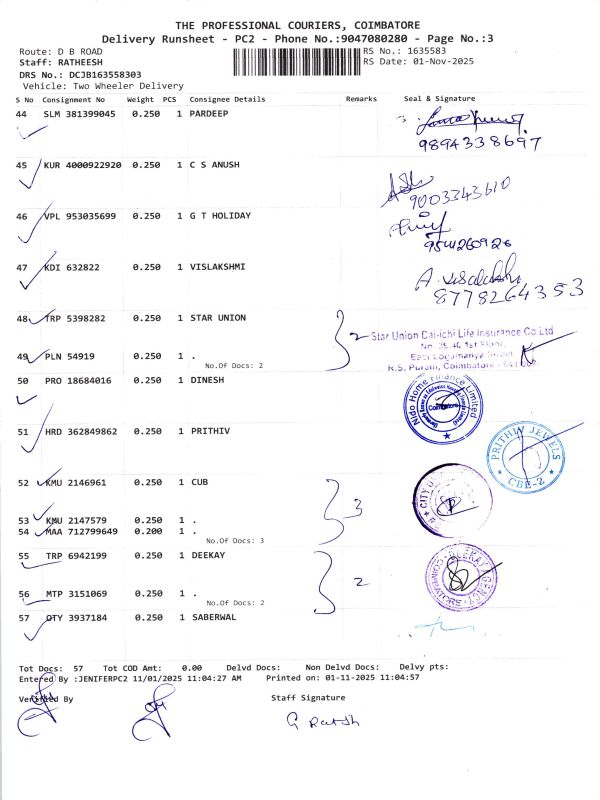 THE PROFESSIONAL COURIERS, COIMBATORE
Delivery Runsheet - PC2 - Phone No.:9047080280 - Page No.:3
Route: D B ROAD
RS No.: 1635583
Staff: RATHEESH
RS Date: 01-Nov-2025
DRS No.: DCJB163558303
Vehicle: Two Wheeler Delivery
S No Consignment No Weight PCS Consignee Details Remarks Seal & Signature
44 SLM 381399045 0.250 1 PARDEEP
9894338697
45 KUR 4000922920 0.250 1 C S ANUSH
9003343610
46 VPL 953035699 0.250 1 G T HOLIDAY
47 KDI 632822 0.250 1 VISLAKSHMI
A. Visalakshi
8778264353
48 TRP 5398282 0.250 1 STAR UNION
2
Star Union Dai-ichi Life Insurance Co Ltd
49 PLN 54919 0.250 1 .
No.Of Docs: 2
R.S. Puram, Coimbatore - 641
50 PRO 18684016 0.250 1 DINESH
Nido Home Finance Limited
Coimbatore
51 HRD 362849862 0.250 1 PRITHIV
PRITHIV JEWELS
CBE-2
52 KMU 2146961 0.250 1 CUB
3
CITY U
53 KMU 2147579 0.250 1 .
54 MAA 712799649 0.200 1 .
No.Of Docs: 3
55 TRP 6942199 0.250 1 DEEKAY
2
COIMBATORE
56 MTP 3151069 0.250 1 .
No.Of Docs: 2
57 OTY 3937184 0.250 1 SABERWAL
Tot Docs: 57 Tot COD Amt: 0.00 Delvd Docs: Non Delvd Docs: Delvy pts:
Entered By :JENIFERPC2 11/01/2025 11:04:27 AM Printed on: 01-11-2025 11:04:57
Verified By
Staff Signature